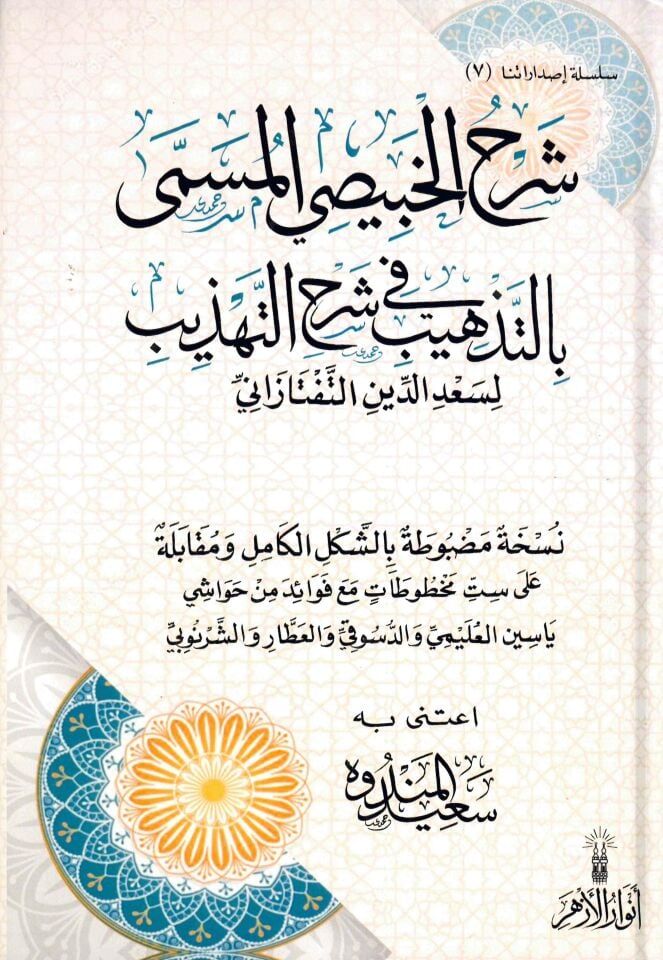 سلسلة إصداراتنا (٧)
شَرْحُ الخَبِيصِي المُسَمَّى
بِالتَّذْهِيبِ فِي شَرْحِ التَّهْذِيبِ
لِسَعْدِ الدِّينِ التَّفْتَازَانِيِّ
نُسْخَةٌ مَضْبُوطَةٌ بِالشَّكْلِ الكَامِلِ وَمُقَابَلَةٌ
عَلَى سِتِّ مَخْطُوطَاتٍ مَعَ فَوَائِدَ مِنْ حَوَاشِي
يَاسِين العُلَيْمِيِّ وَالدُّسُوقِيِّ وَالعَطَّارِ وَالشَّرْنُوبِيِّ
اعتنى به
سَعِيد المَنْدُوه
أنوار الأزهر